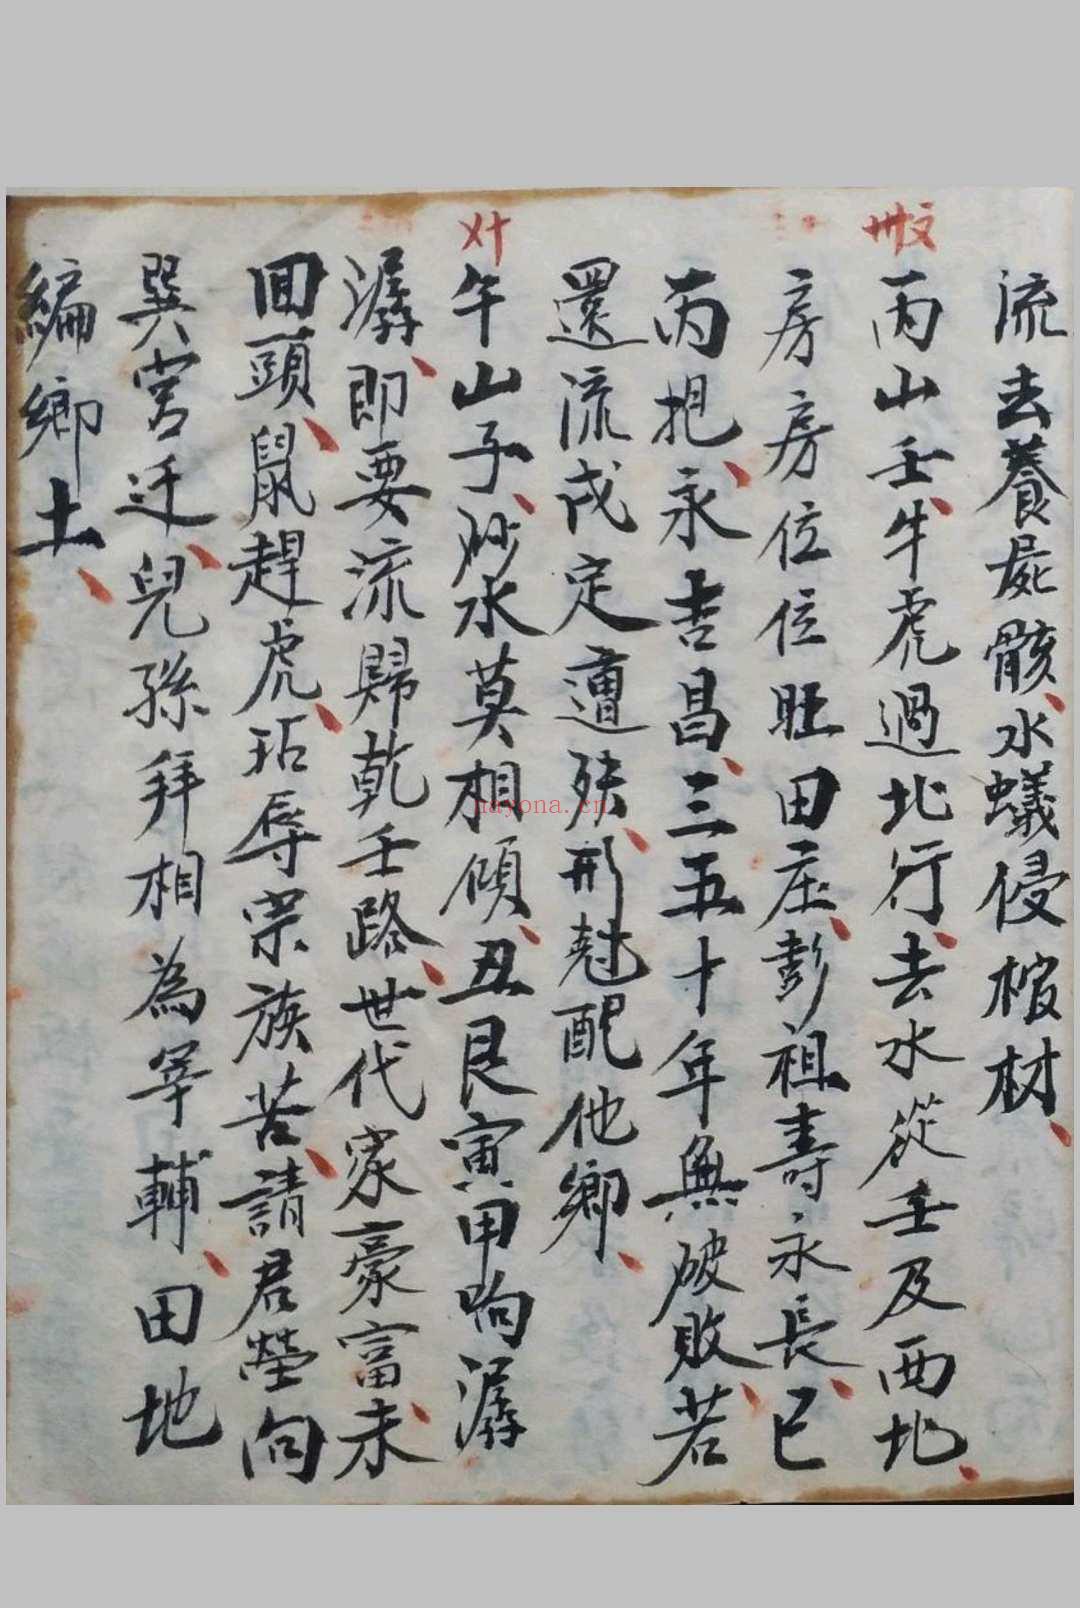 流去養屍骸、水蟻侵棺材、
丙山壬牛虎過北行、去水從壬及西北、
房房位位旺田庄、彭祖壽永長、巳
丙抱、永吉昌、三五十年無破敗、若
還流戌定遭殃、刑尅配他鄉、
午山子、砂水莫相傾、丑艮寅甲响潺
潺、即要流歸乾壬路、世代家豪富、未
回頭、鼠趕虎、玷辱宗族苦、請君塋向
巽宮迁、兒孫拜相為宰輔、田地
編鄉土、
nayona.cn